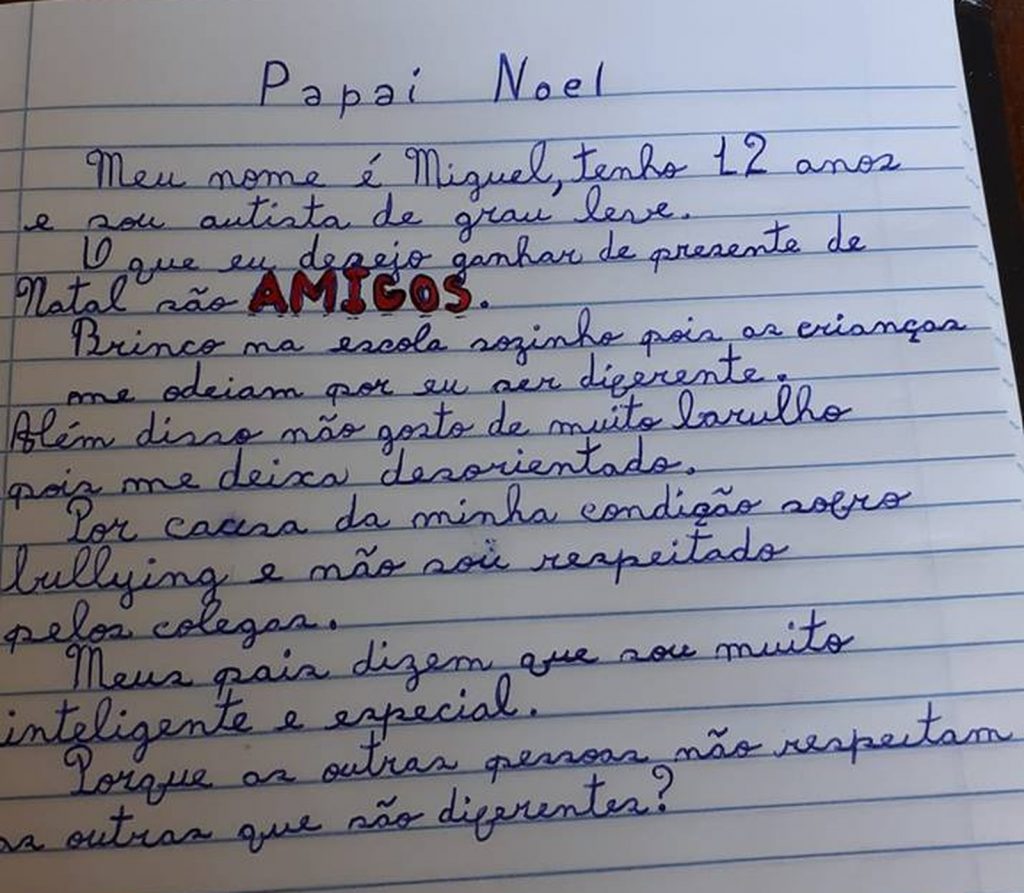 Papai Noel
Meu nome é Miguel, tenho 12 anos
e sou autista de grau leve.
O que eu desejo ganhar de presente de
Natal são AMIGOS.
Brinco na escola sozinho pois as crianças
me odeiam por eu ser diferente.
Além disso não gosto de muito barulho
pois me deixa desorientado.
Por causa da minha condição sofro
bullying e não sou respeitado
pelos colegas.
Meus pais dizem que sou muito
inteligente e especial.
Porque as outras pessoas não respeitam
as outras que são diferentes?